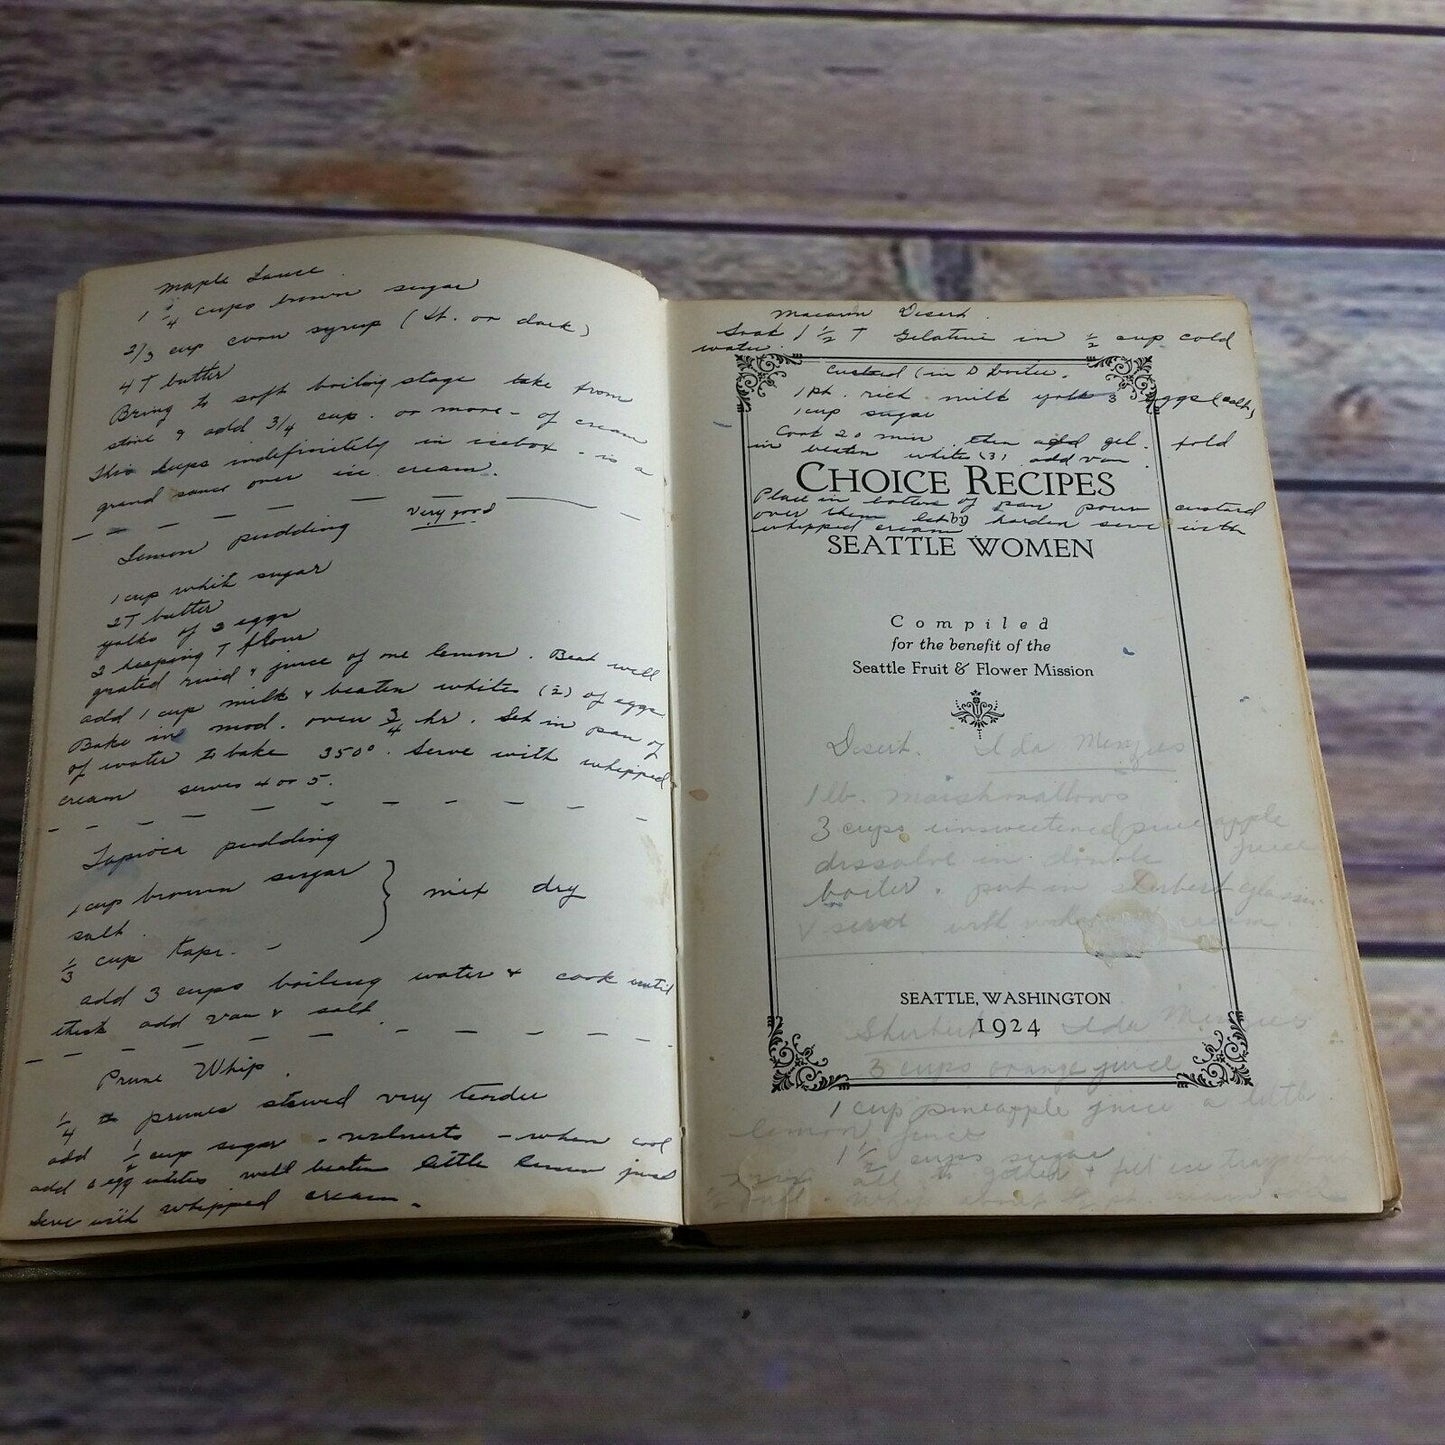 Maple Sauce
1 1/4 cups brown sugar
2/3 cup corn syrup (lt. or dark)
4 T butter
Bring to soft boiling stage take from
stove & add 3/4 cup. or more - of cream
This keeps indefinitely in icebox - is a
grand sauce over ice cream.
Lemon pudding Very good
1 cup white sugar
2T butter
yolks of 2 eggs
2 heaping T flour
grated rind & juice of one lemon. Beat well
add 1 cup milk & beaten whites (2) of eggs
Bake in mod. oven 3/4 hr. Set in pan of
of water to bake 350°. Serve with whipped
cream serves 4 or 5.
Tapioca pudding
1 cup brown sugar } mix dry
salt.
1/3 cup tapi. -
add 3 cups boiling water & cook until
thick add van & salt
Prune Whip.
1/4 prunes stewed very tender
add 1/2 cup sugar - walnuts - when cool
add egg whites well beaten little lemon juice
Serve with whipped cream.
Macaroon Desert.
Soak 1 1/2 T Gelatine in 1/2 cup cold
water.
Custard (in D boiler.
1 pt. rich milk yolk 3 eggs (salt)
1 cup sugar
Cook 20 min. then add gel. fold
in beaten white (3) add van.
CHOICE RECIPES
Place in bottom of pan pour custard
over them let harden serve with
by
whipped cream
SEATTLE WOMEN
Compiled
for the benefit of the
Seattle Fruit & Flower Mission
Desert. Ida Menzies
1 lb. marshmallows
3 cups unsweetened pineapple
dissolve in double juice
boiler. put in sherbert glasses
& serve with cream.
SEATTLE, WASHINGTON
1924
Sherbert Ida Menzies
3 cups orange juice
1 cup pineapple juice a little
lemon juice
1 1/2 cups sugar
all together &